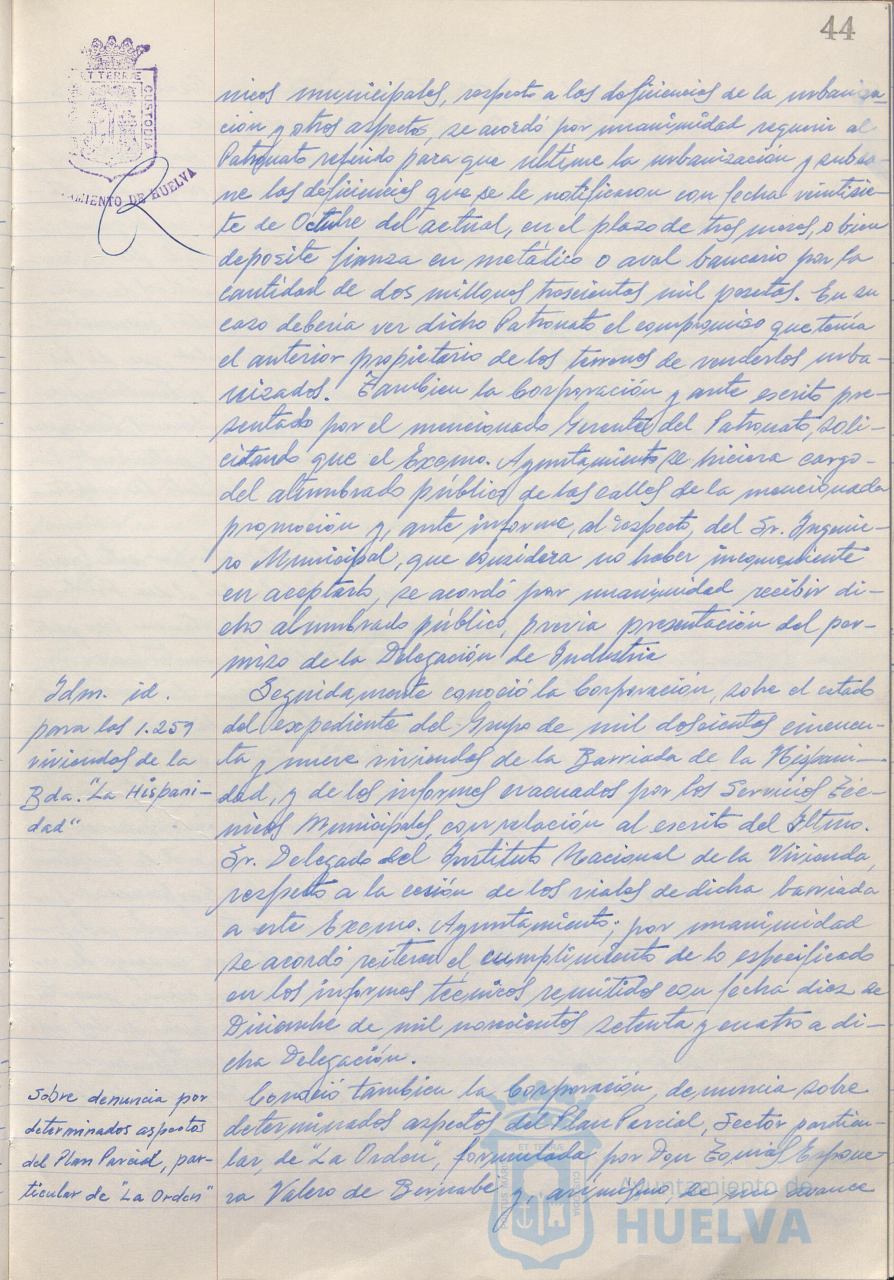 44
ET TERRÆ
CUSTODIA
AMIENTO DE HUELVA
nicos municipales, respecto a las deficiencias de la urbaniza-
ción y otros aspectos, se acordó por unanimidad requerir al
Patronato referido para que ultime la urbanización y subsa
ne las deficiencias que se le notificaron con fecha veintisie-
te de Octubre del actual, en el plazo de tres meses, o bien
deposite fianza en metálico o aval bancario por la
cantidad de dos millones trescientas mil pesetas. En su
caso debería ver dicho Patronato el compromiso que tenía
el anterior propietario de los terrenos de venderlos urba-
nizados. Tambien la Corporación y ante escrito pre-
sentado por el mencionado Gerente del Patronato, soli-
citando que el Excmo. Ayuntamiento se hiciera cargo
del alumbrado público de las calles de la mencionada
promoción y, ante informe, al respecto, del Sr. Ingenie-
ro Municipal, que considera no haber inconveniente
en aceptarlo, se acordó por unanimidad recibir di-
cho alumbrado público, previa presentación del per-
miso de la Delegación de Industria
Idm. id.
para las 1.259
viviendas de la
Bda. "La Hispani-
dad"
Seguidamente conoció la Corporación, sobre el estado
del expediente del Grupo de mil doscientas cincuen-
ta y nueve viviendas de la Barriada de la Hispani-
dad, y de los informes evacuados por los Servicios Téc-
nicos Municipales, con relación al escrito del Iltmo.
Sr. Delegado del Instituto Nacional de la Vivienda,
respecto a la cesión de los viales de dicha barriada
a este Excmo. Ayuntamiento; por unanimidad
se acordó reiterar el cumplimiento de lo especificado
en los informes técnicos remitidos con fecha diez de
Diciembre de mil novecientos setenta y cuatro a di-
cha Delegación.
Sobre denuncia por
determinados aspectos
del Plan Parcial, par-
ticular de "La Orden"
Conoció tambien la Corporación, denuncia sobre
determinados aspectos del Plan Parcial, Sector particu-
lar, de "La Orden", formulada por Don Tomás Espone-
ra Valero de Bernabe y, asimismo, de un avance
ET TERRÆ
CUSTODIA
Ayuntamiento de
HUELVA